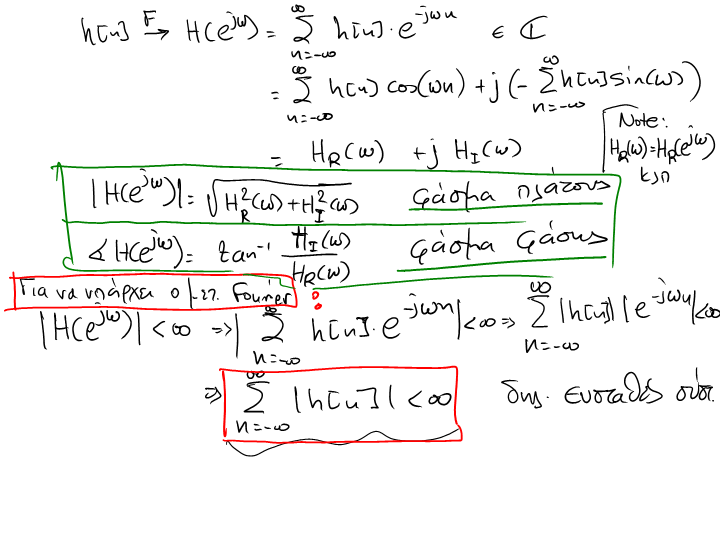 h[n] F→ H(e^{jω}) = ∑_{n=-∞}^{∞} h[n]·e^{-jωn} ∈ ℂ
= ∑_{n=-∞}^{∞} h[n] cos(ωn) + j(-∑_{n=-∞}^{∞} h[n] sin(ω))
Note:
H_R(ω)=H_R(e^{jω})
κλπ
= H_R(ω) + j H_I(ω)
|H(e^{jω})| = √(H_R^2(ω)+H_I^2(ω)) φάσμα πλάτους
∢ H(e^{jω}) = tan^{-1} H_I(ω)/H_R(ω) φάσμα φάσης
Για να υπάρχει ο μ-σχ. Fourier:
|H(e^{jω})| < ∞ ⇒ |∑_{n=-∞}^{∞} h[n]·e^{-jωn}| < ∞ ⇒ ∑_{n=-∞}^{∞} |h[n]| |e^{-jωn}| < ∞
⇒ ∑_{n=-∞}^{∞} |h[n]| < ∞ δηλ. ευσταθές σύστ.